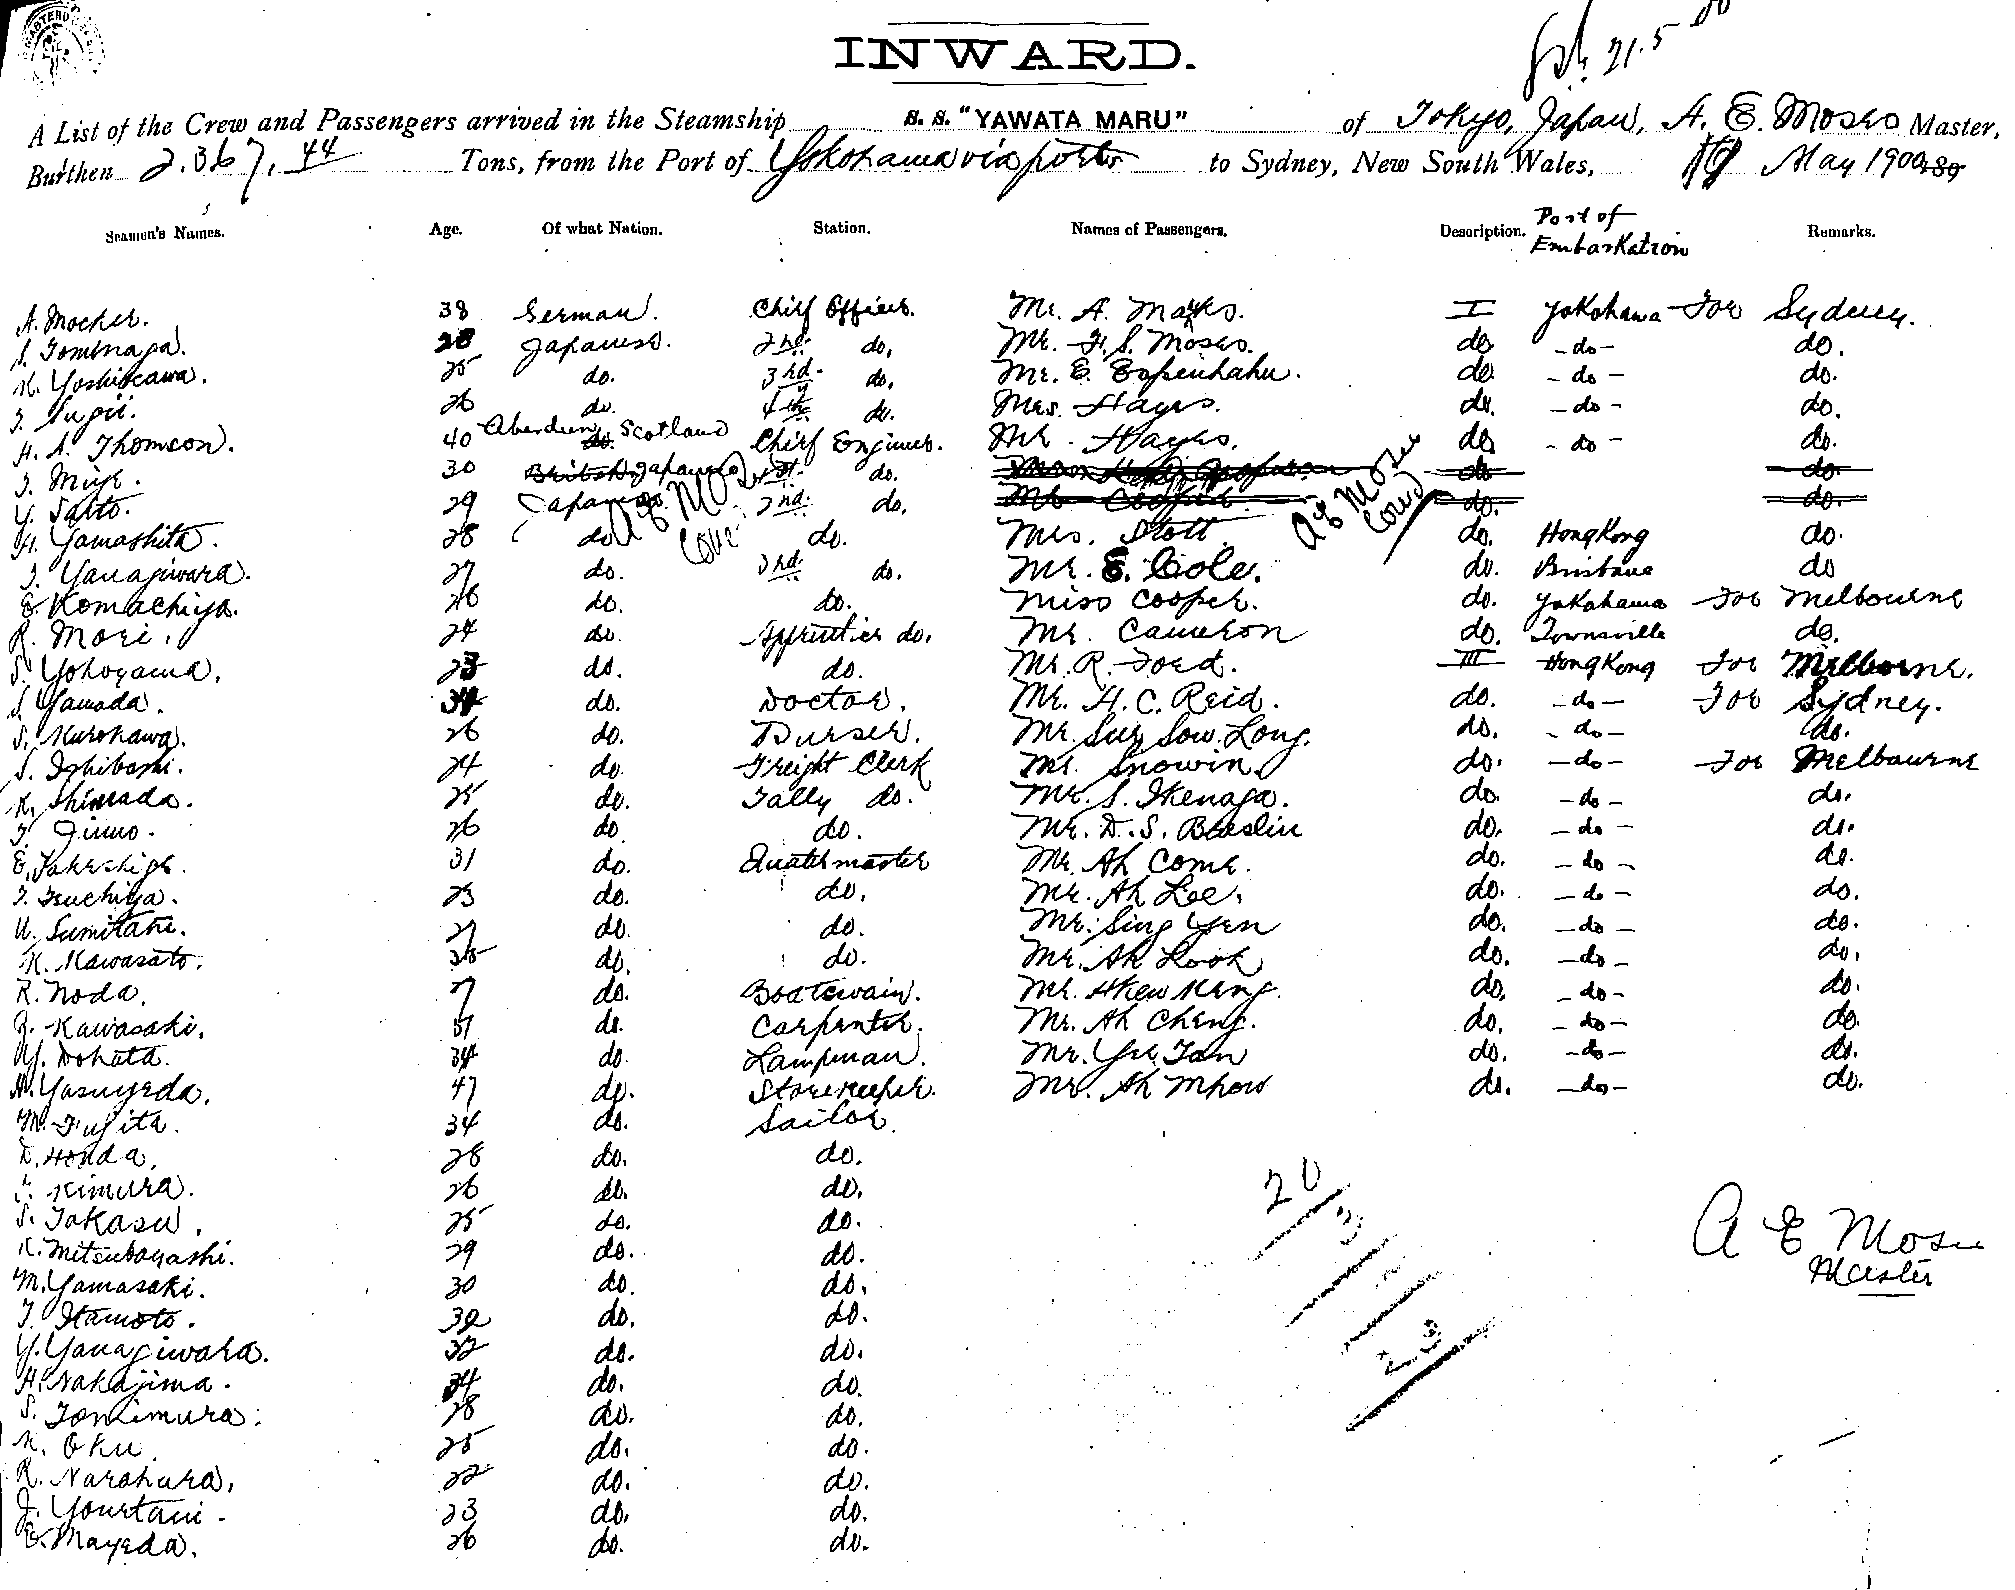 INWARD.
21.5
A List of the Crew and Passengers arrived in the Steamship S. S. "YAWATA MARU" of Tokyo, Japan, A. E. Moses Master,
Burthen 2.367.44 Tons, from the Port of Yokohama via ports to Sydney, New South Wales, May 1900 189
Seamen's Names. Age. Of what Nation. Station. Names of Passengers. Description. Port of Embarkation Remarks.
A. Mocker. 38 German. Chief Officer. Mr. A. Marks. I Yokohama For Sydney.
S. Tominaga. 28 Japanese. 2nd. do. Mr. F. S. Moses. do - do - do.
K. Yoshikawa. 25 do. 3rd. do. Mr. E. Espenhahn. do. - do - do.
T. Sugii. 26 do. 4th do. Mrs. Hayes. do. - do - do.
H. A. Thomson. 40 Aberdeen Scotland do. Chief Engineer. Mr. Hayes. do - do do.
T. Miyk. 30 British Japanese 1st. do. do do.
Y. Saito. 29 Japanese. 2nd. do. Mr do. do.
A E Moses A E Moses
H. Yamashita. 28 do do. Mrs. Stott. do. HongKong do.
T. Yanagiwara. 27 do. 3rd. do. Mr. E. Cole. do. Brisbane do
E. Komachiya. 26 do. do. Miss Cooper. do. Yokohama For Melbourne
R. Mori. 24 do. Apprentice do. Mr. Cameron do. Townsville do.
S. Yokoyama. 23 do. do. Mr. R. Ford. III HongKong For Melborne.
S. Yamada. 34 do. Doctor. Mr. H. C. Reid. do. - do - For Sydney.
S. Kurokawa. 26 do. Purser. Mr. Sue Sow Long. do. - do - do.
S. Ishibashi. 24 do. Freight Clerk Mr. Snowin. do. - do - For Melbourne
K. Shimada. 25 do. Tally do. Mr. S. Ikenaga. do. - do - do.
T. Jimo. 26 do do. Mr. D. S. Breslin do. - do - do.
E. Takeshige. 31 do. Quatermaster Mr. Ah Come. do. - do - do.
T. Tsuchiya. 23 do. do. Mr. Ah Lee. do. - do - do.
U. Sumitani. 27 do. do. Mr. Sing Yen do. - do - do.
K. Kawasato. 25 do. do. Mr. Ah Look do. - do - do.
R. Noda. 27 do. Boatswain. Mr. Hkew Keng. do. - do - do.
J. Kawasaki. 31 do. Carpenter. Mr. Ah Cheng. do. - do - do.
Y. Dohata. 34 do. Lampman. Mr. Yee Tan do. - do - do.
H. Yasuyeda. 47 do. Storekeeper. Mr. Ah Mhow do. - do - do.
M. Fujita. 34 do. Sailor.
D. Honda. 28 do. do.
Kimura. 26 do. do.
S. Takasu. 25 do. do.
K. Mitsubayashi. 29 do. do.
M. Yamasaki. 30 do. do.
T. Itamoto. 32 do. do.
Y. Yanagiwara. 32 do. do.
H. Nakajima. 24 do. do.
S. Tomimura. 28 do. do.
K. Oku. 25 do. do.
R. Narahara. 22 do. do.
J. Yonetani. 23 do. do.
E. Mayeda. 26 do. do.
20
3
23
A E Moses
Master